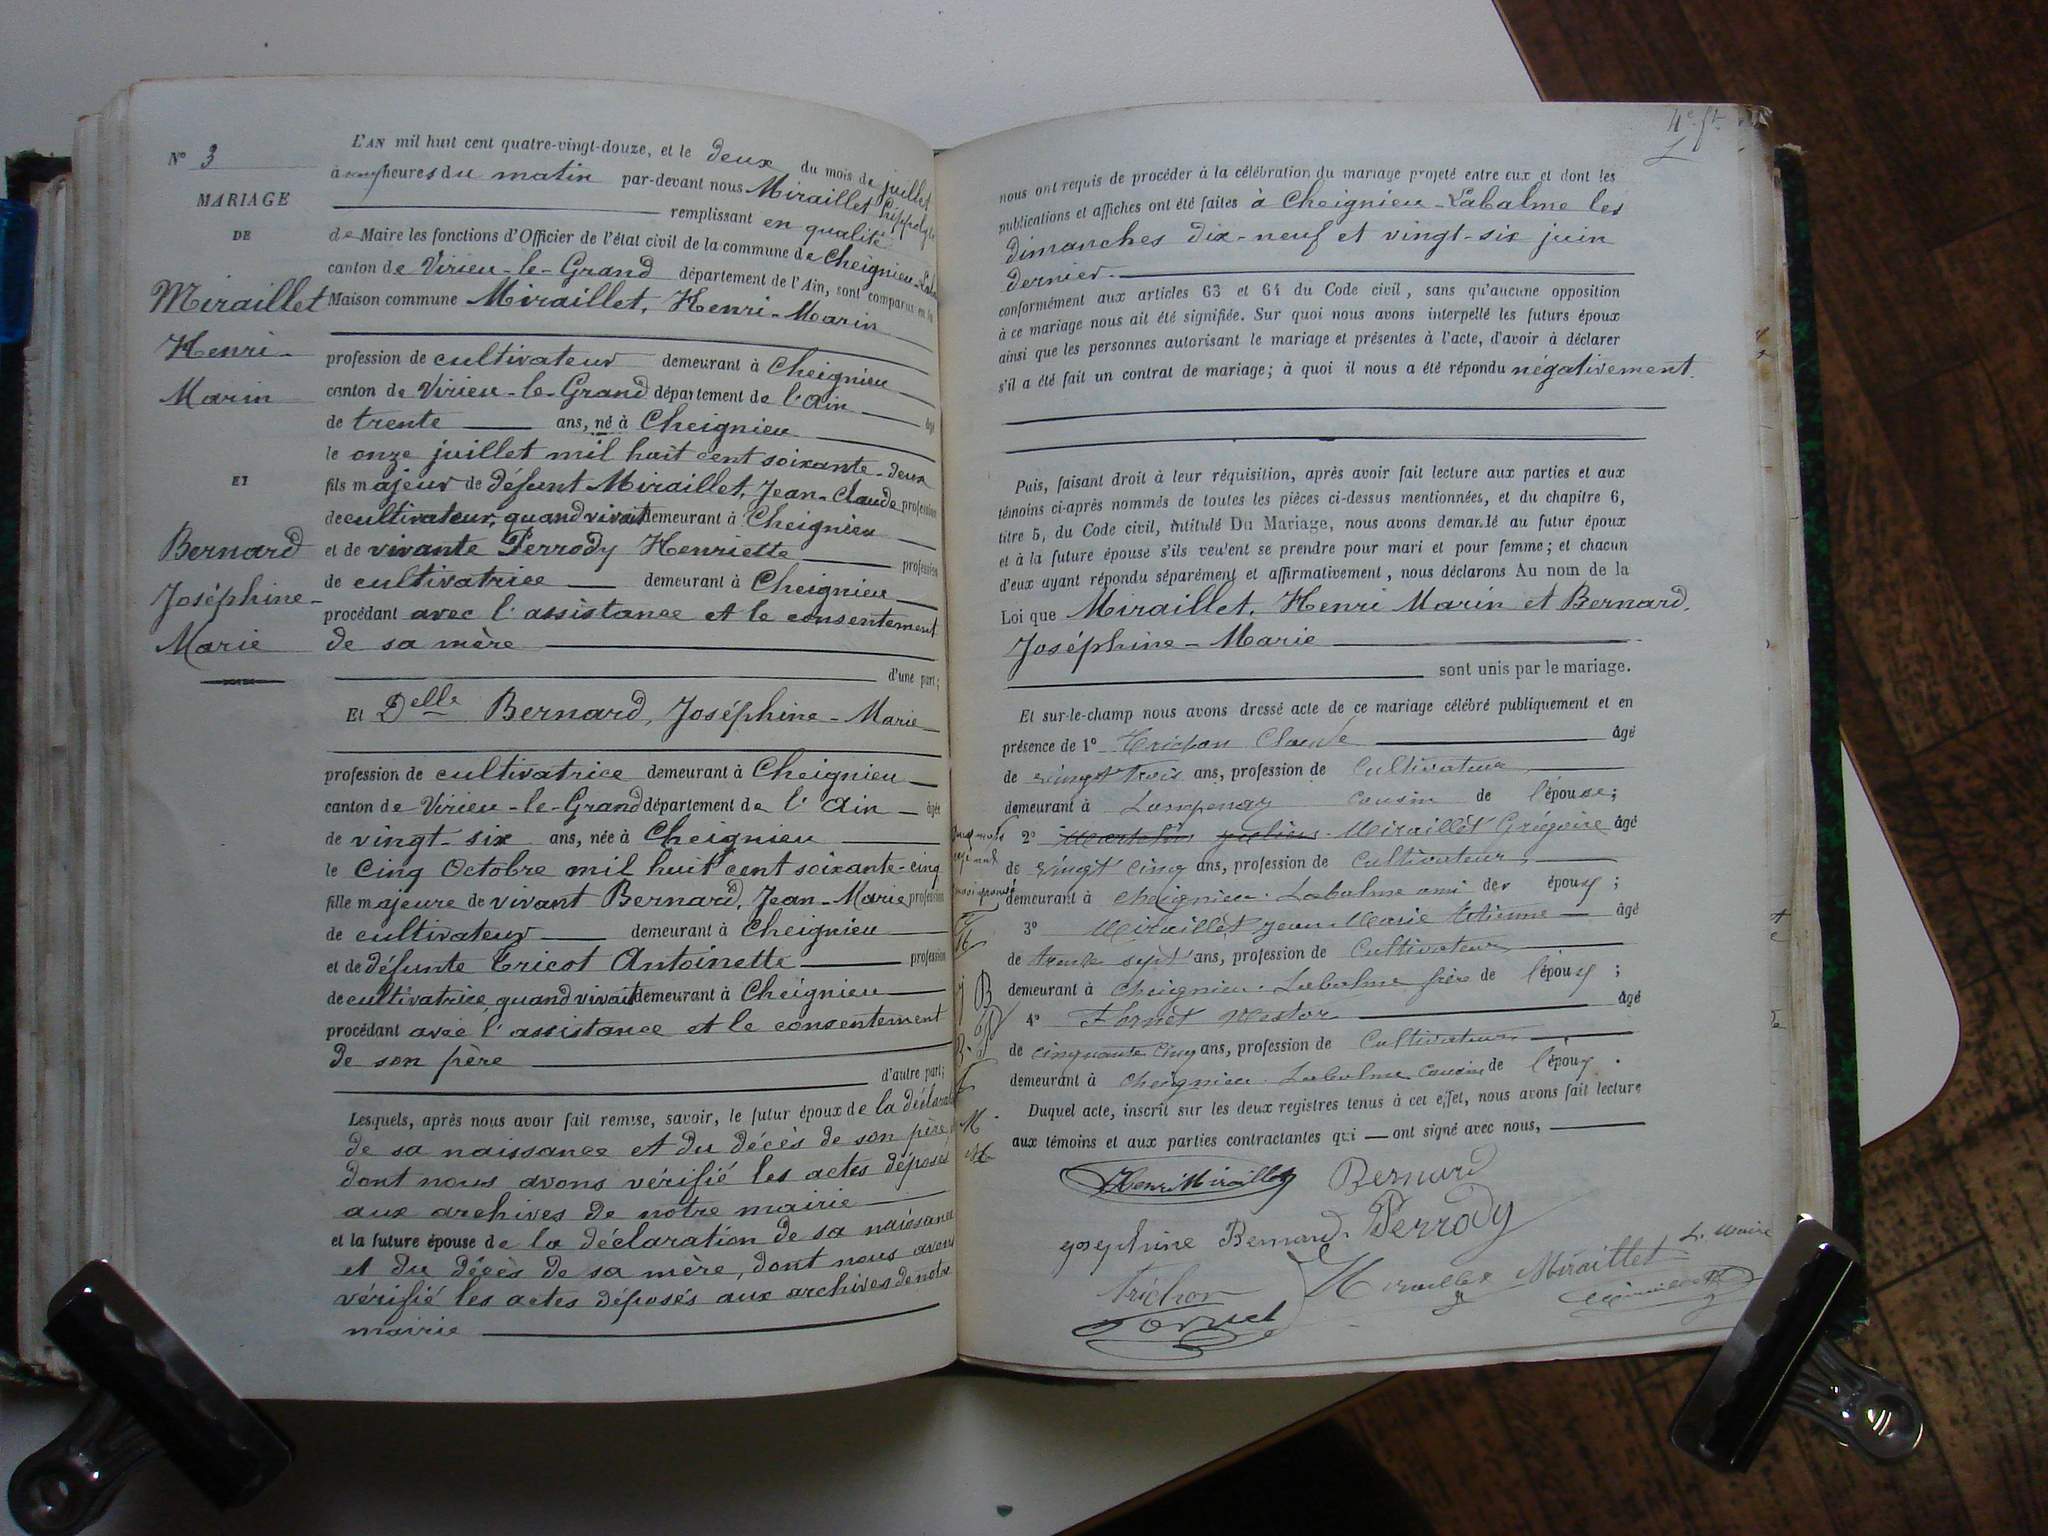 N° 3
MARIAGE
DE
Miraillet
Henri-
Marin
ET
Bernard
Joséphine-
Marie
L'AN mil huit cent quatre-vingt-douze, et le deux du mois de juillet
à heures du matin par-devant nous Miraillet Hippolyte
remplissant en qualité
de Maire les fonctions d'Officier de l'état civil de la commune de Cheignieu-Labalme
canton de Virieu-le-Grand département de l'Ain, sont comparus en la
Maison commune Miraillet, Henri-Marin
profession de cultivateur demeurant à Cheignieu
canton de Virieu-le-Grand département de l'Ain âgé
de trente ans, né à Cheignieu
le onze juillet mil huit cent soixante-deux
fils majeur de défunt Miraillet, Jean-Claude profession
de cultivateur, quand vivait demeurant à Cheignieu
et de vivante Perrody Henriette profession
de cultivatrice demeurant à Cheignieu
procédant avec l'assistance et le consentement
de sa mère
d'une part;
Et Delle Bernard, Joséphine-Marie
profession de cultivatrice demeurant à Cheignieu
canton de Virieu-le-Grand département de l'Ain âgée
de vingt-six ans, née à Cheignieu
le cinq Octobre mil huit cent soixante-cinq
fille majeure de vivant Bernard, Jean-Marie profession
de cultivateur demeurant à Cheignieu
et de défunte Tricot Antoinette profession
de cultivatrice quand vivait demeurant à Cheignieu
procédant avec l'assistance et le consentement
de son père
d'autre part;
Lesquels, après nous avoir fait remise, savoir, le futur époux de la déclarat
de sa naissance et du décès de son père,
dont nous avons vérifié les actes déposés
aux archives de notre mairie
et la future épouse de la déclaration de sa naissance
et du décès de sa mère, dont nous avons
vérifié les actes déposés aux archives de notre
mairie
nous ont requis de procéder à la célébration du mariage projeté entre eux et dont les
publications et affiches ont été faites à Cheignieu-Labalme les
dimanches dix-neuf et vingt-six juin
dernier.
conformément aux articles 63 et 64 du Code civil, sans qu'aucune opposition
à ce mariage nous ait été signifiée. Sur quoi nous avons interpellé les futurs époux
ainsi que les personnes autorisant le mariage et présentes à l'acte, d'avoir à déclarer
s'il a été fait un contrat de mariage; à quoi il nous a été répondu négativement.
Puis, faisant droit à leur réquisition, après avoir fait lecture aux parties et aux
témoins ci-après nommés de toutes les pièces ci-dessus mentionnées, et du chapitre 6,
titre 5, du Code civil, intitulé Du Mariage, nous avons demandé au futur époux
et à la future épouse s'ils veulent se prendre pour mari et pour femme; et chacun
d'eux ayant répondu séparément et affirmativement, nous déclarons Au nom de la
Loi que Miraillet, Henri Marin et Bernard,
Joséphine-Marie
sont unis par le mariage.
Et sur-le-champ nous avons dressé acte de ce mariage célébré publiquement et en
présence de 1° Trichon Claude âgé
de vingt trois ans, profession de Cultivateur
demeurant à cousin de l'épouse;
2° Miraillet Grégoire âgé
de vingt cinq ans, profession de Cultivateur,
demeurant à Cheignieu-Labalme ami de époux;
3° Miraillet Jean-Marie Etienne âgé
de trente sept ans, profession de Cultivateur
demeurant à Cheignieu-Labalme frère de l'époux;
4° Fornet Nestor âgé
de cinquante cinq ans, profession de Cultivateur
demeurant à Cheignieu-Labalme Cousin de l'époux.
Duquel acte, inscrit sur les deux registres tenus à cet effet, nous avons fait lecture
aux témoins et aux parties contractantes qui ont signé avec nous,
Henri Miraillet Bernard
Joséphine Bernard Perrody
Trichon Miraillet Miraillet
Le Maire
Fornet